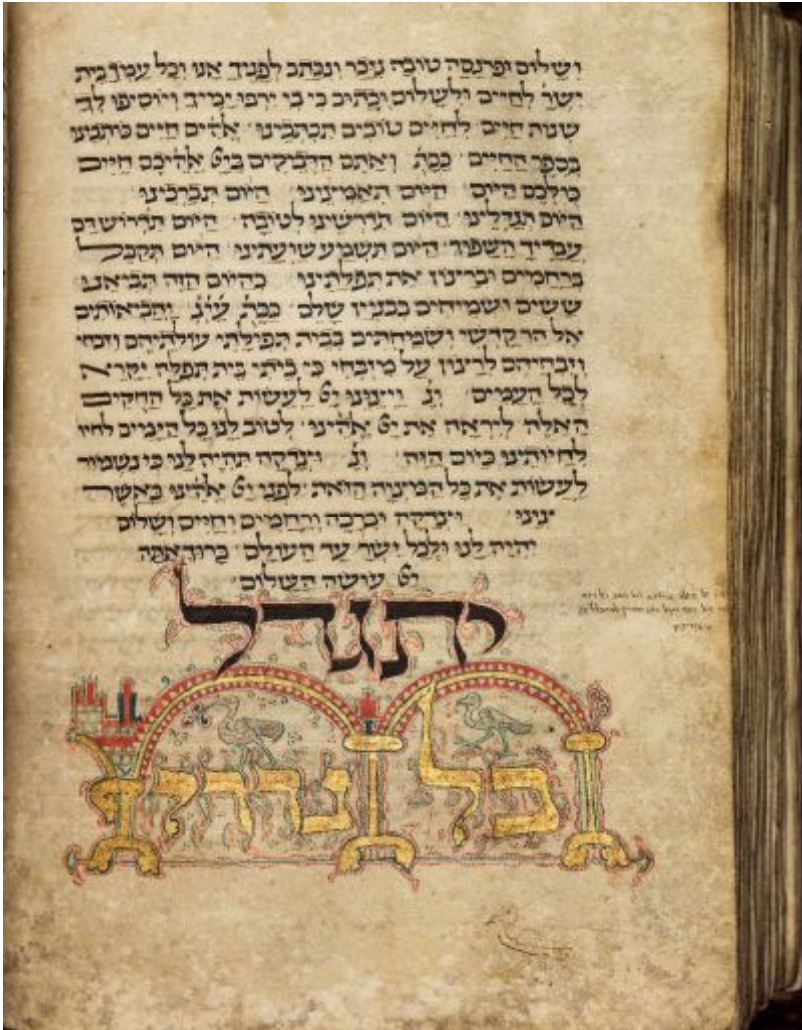 ושלום ופרנסה טובה נזכר ונכתב לפניך אנו וכל עמך בית
ישר׳ לחיים ולשלום וכתוב כי בי ירבו ימיך ויוסיפו לך
שנות חיים׳ לחיים טובים תכתבינו׳ אלהים חיים כותבינו
בספר החיים׳ ככת׳ ואתם הדביקים ביי אלהיכם חיים
כולכם היום׳ היום תאמצינו׳ היום תברכינו׳
היום תגדלינו׳ היום תדרשינו לטובה׳ היום תדרוש דם
עבדיך השפוך׳ היום תשמע שועתינו׳ היום תקבל
ברחמים וברצון את תפלתינו׳ כהיום הזה תביאנו
ששים ושמיחים בבניין שלם׳ ככת׳ והביאותים
אל הר קדשי ושמחתים בבית תפילתי עולתיהם וזבחי
וזבחיהם לרצון על מזבחי כי ביתי בית תפלה יקרא
לכל העמים׳ ונ׳ ויצוינו יי לעשות את כל החקים
האלה ליראה את יי אלהינו׳ לטוב לנו כל הימים לחיו
לחיותינו כיום הזה׳ ונ׳ וצדקה תהיה לנו כי נשמור
לעשות את כל המצוה הזאת׳ לפני יי אלהינו כאשר
ציוינו׳ וצדקה וברכה ורחמים וחיים ושלום
יהיה לנו ולכל ישר׳ עד העולם׳ ברוך אתה
יי עושה השלום׳
יתגדל
כל נדרי